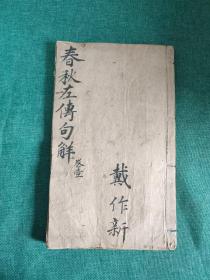 春秋左傳句解
卷壹
戴作新